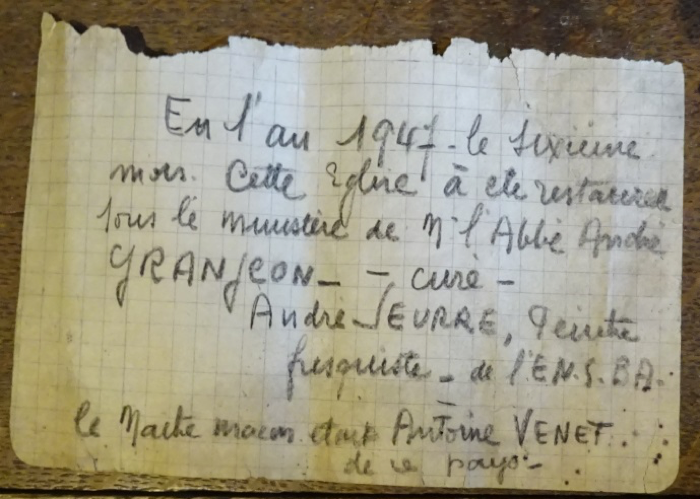 En l'an 1947 - le sixième
mois. Cette Eglise à été restaurée
sous le ministère de Mr l'Abbé André
GRANJEON - - curé -
André SEURRE, Peintre
fresquiste - de l'E.N.S.BA.
le Maitre maçon était Antoine VENET.
de ce pays -